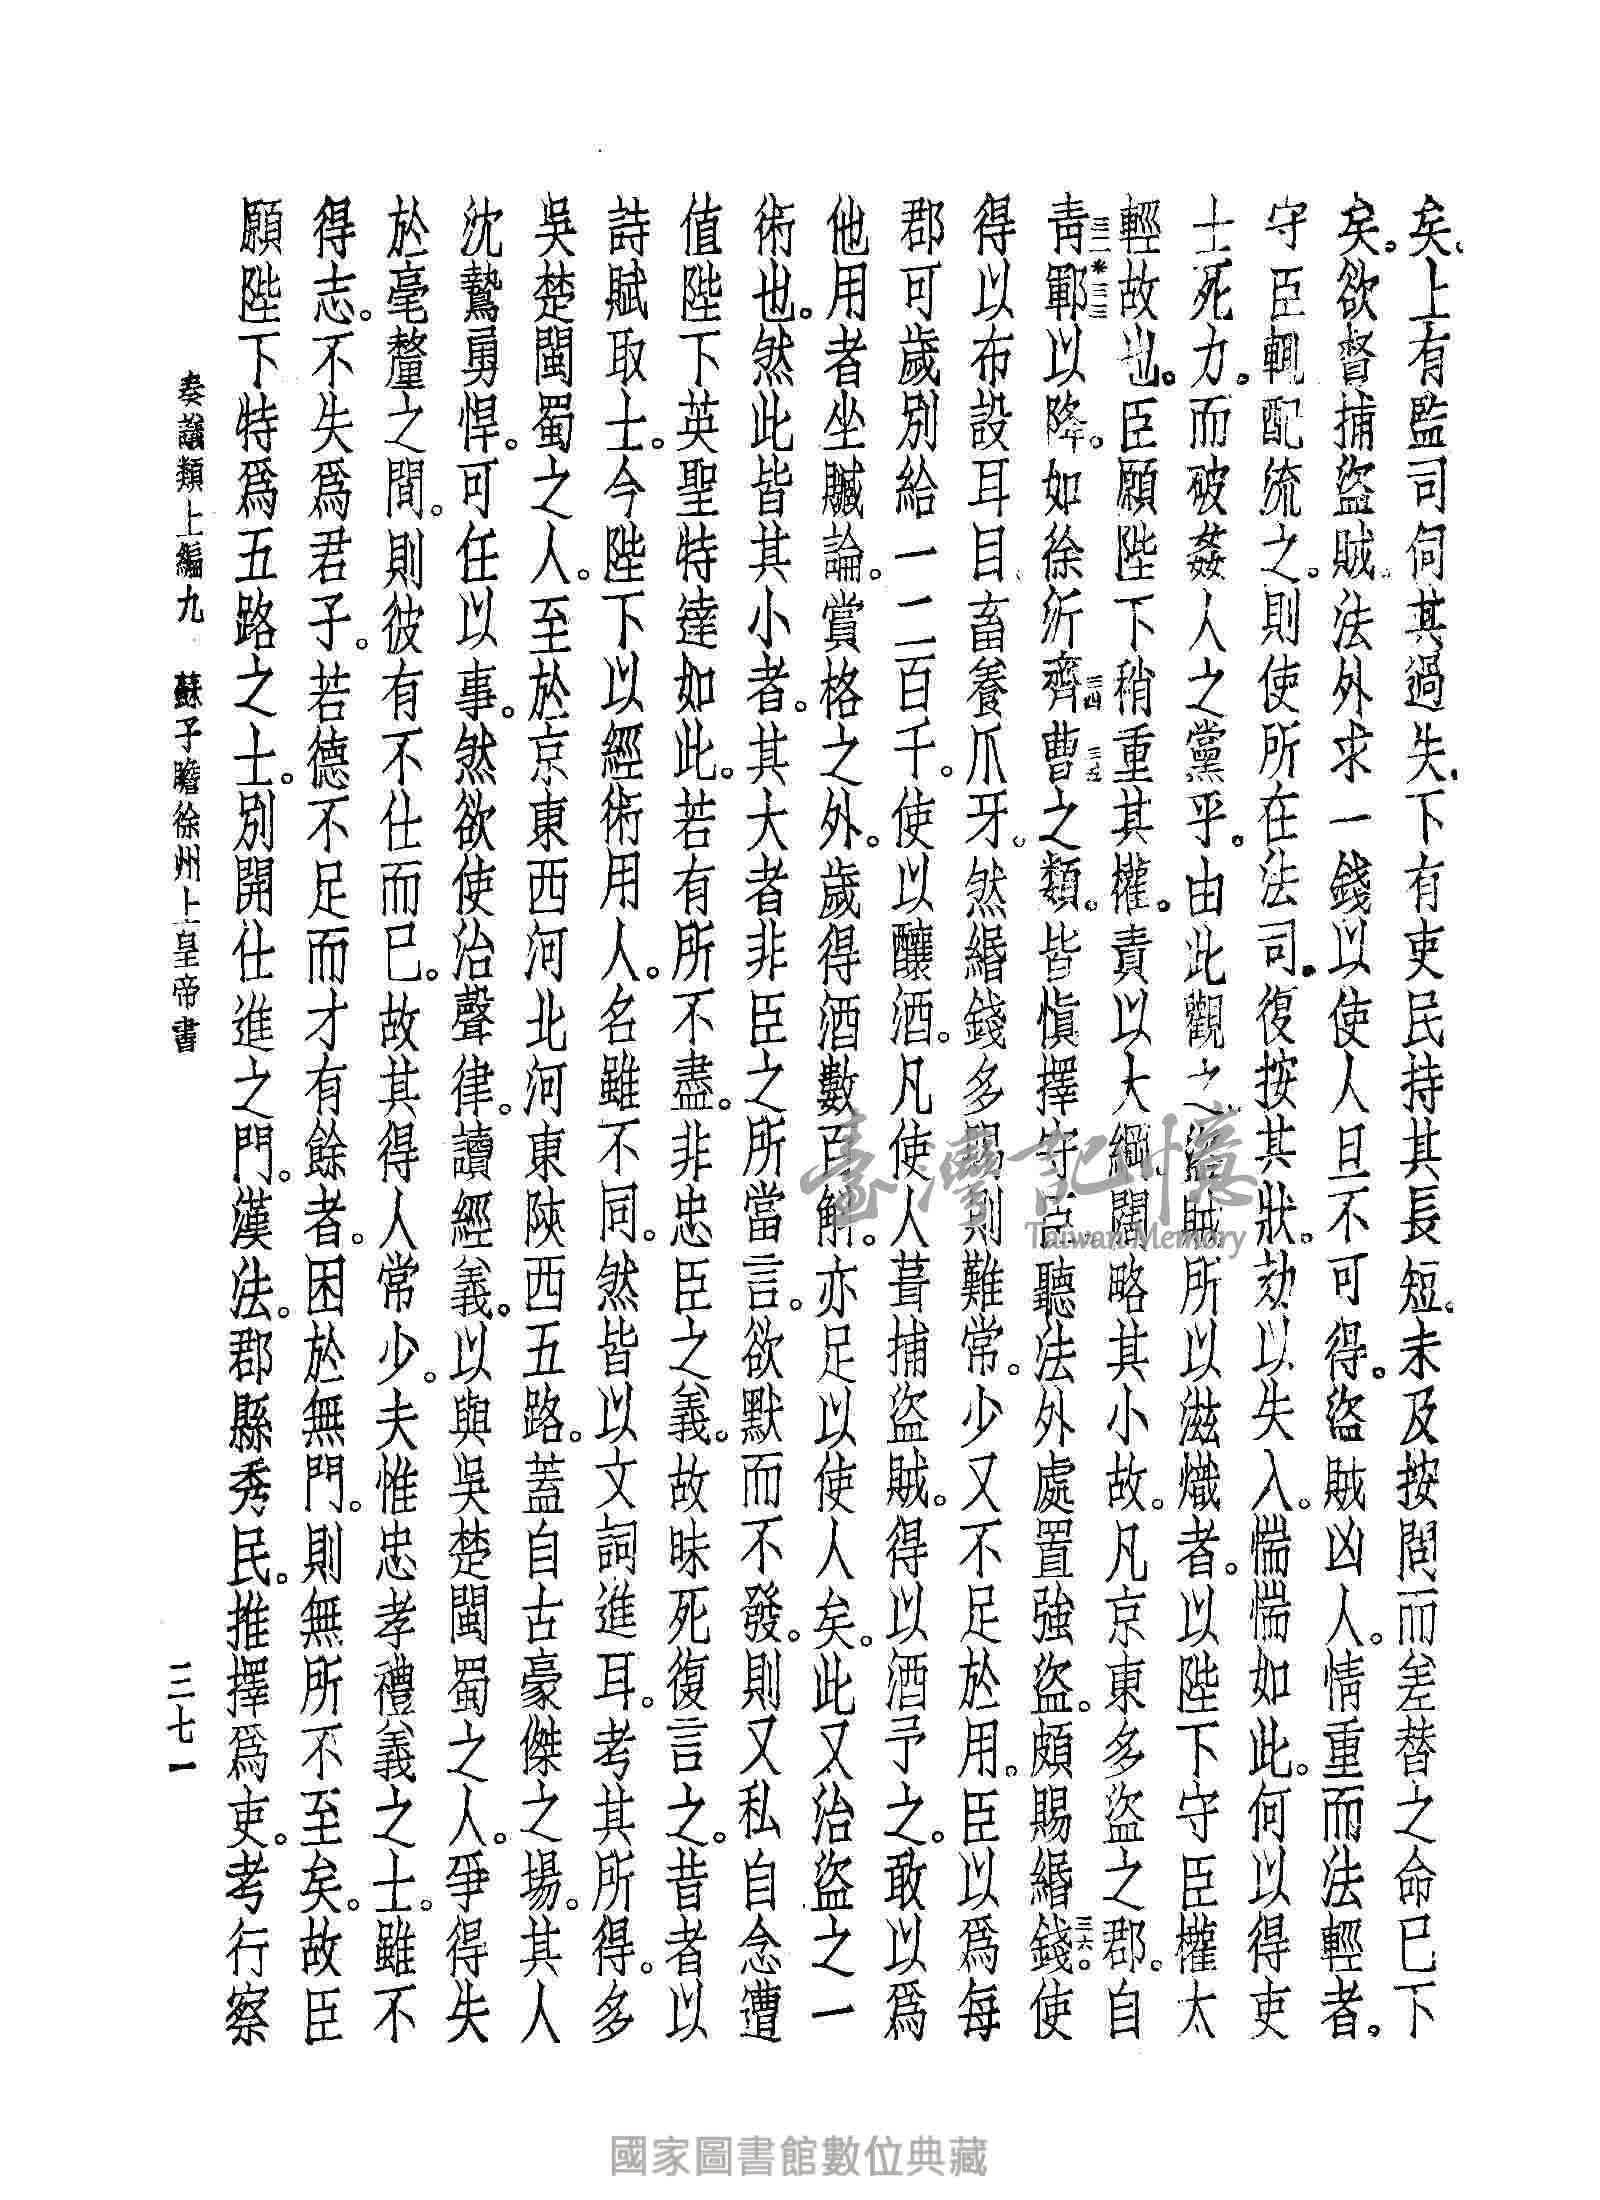 矣。上有監司伺其過失。下有吏民持其長短。未及按問而差替之命已下
矣。欲督捕盜賊。法外求一錢以使人且不可得。盜賊凶人。情重而法輕者。
守臣輒配流之。則使所在法司。復按其狀。劾以失入。惴惴如此。何以得吏
士死力。而破姦人之黨乎。由此觀之。盜賊所以滋熾者。以陛下守臣權太
輕故也。臣願陛下稍重其權。責以大綱。闊略其小故。凡京東多盜之郡。自
青三二*鄆三三以降。如徐沂齊三四曹三五之類。皆愼擇守臣。聽法外處置強盜。頗賜緡錢三六。使
得以布設耳目。畜養爪牙。然緡錢多賜則難常。少又不足於用。臣以爲每
郡可歲別給一二百千。使以釀酒。凡使人葺捕盜賊。得以酒予之。敢以爲
他用者坐贓論。賞格之外。歲得酒數百斛。亦足以使人矣。此又治盜之一
術也。然此皆其小者。其大者非臣之所當言。欲默而不發。則又私自念遭
值陛下英聖特達如此。若有所不盡。非忠臣之義。故昧死復言之。昔者以
詩賦取士。今陛下以經術用人。名雖不同。然皆以文詞進耳。考其所得。多
吳楚閩蜀之人。至於京東西河北河東陝西五路。蓋自古豪傑之場。其人
沈鷙勇悍。可任以事。然欲使治聲律。讀經義。以與吳楚閩蜀之人。爭得失
於毫釐之間。則彼有不仕而已。故其得人常少。夫惟忠孝禮義之士。雖不
得志。不失爲君子。若德不足而才有餘者。困於無門。則無所不至矣。故臣
願陛下特爲五路之士。別開仕進之門。漢法。郡縣秀民。推擇爲吏。考行察
奏議類上編九　蘇子瞻徐州上皇帝書
三七一
臺灣記憶
Taiwan Memory
國家圖書館數位典藏